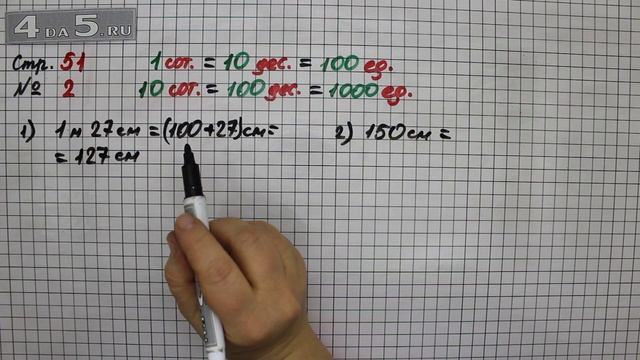 4 DA 5.RU
Стр. 51
1 сот. = 10 дес. = 100 ед.
№ 2
10 сот. = 100 дес. = 1000 ед.
1) 1 м 27 см = (100+27) см =
= 127 см
2) 150 см =